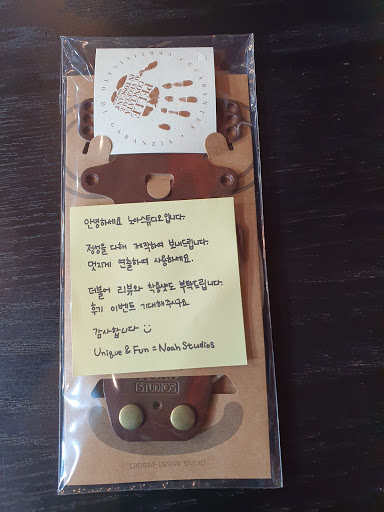 안녕하세요 노아스튜디오입니다.
정성을 다해 제작하여 보내드립니다.
멋지게 연출하여 사용하세요.
더불어 리뷰와 착용샷도 부탁드립니다.
후기 이벤트 기대해주구요
감사합니다
Unique & Fun = Noah Studios
STUDIOS
CREATIVE DESIGN STUDIO